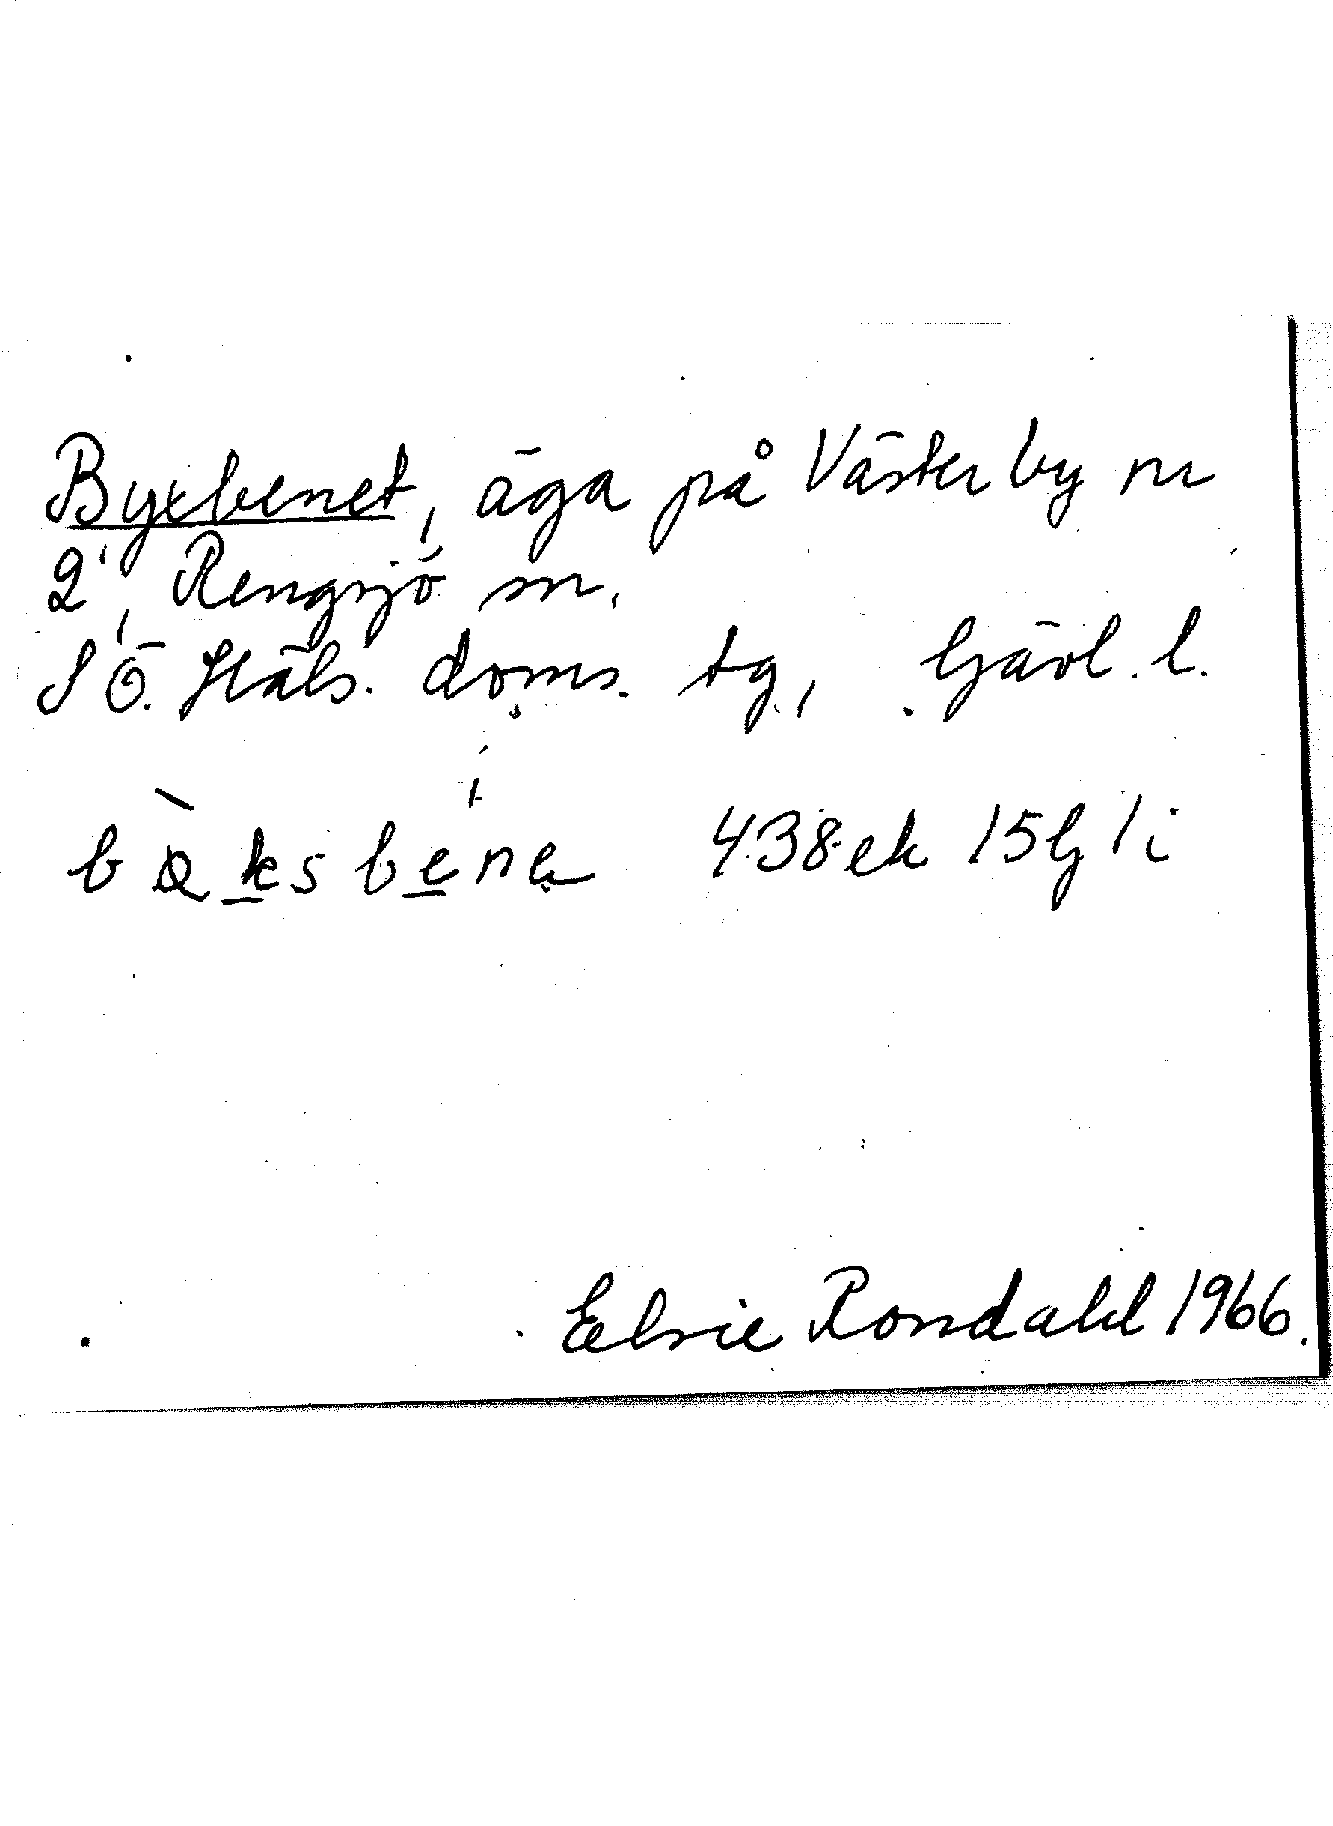 Byxbenet, äga på Västerby nr
2, Rengsjö sn,
SÖ. Häls. doms. tg, Gävl. l.
438ek 15G 1i
Elsie Rondahl 1966.